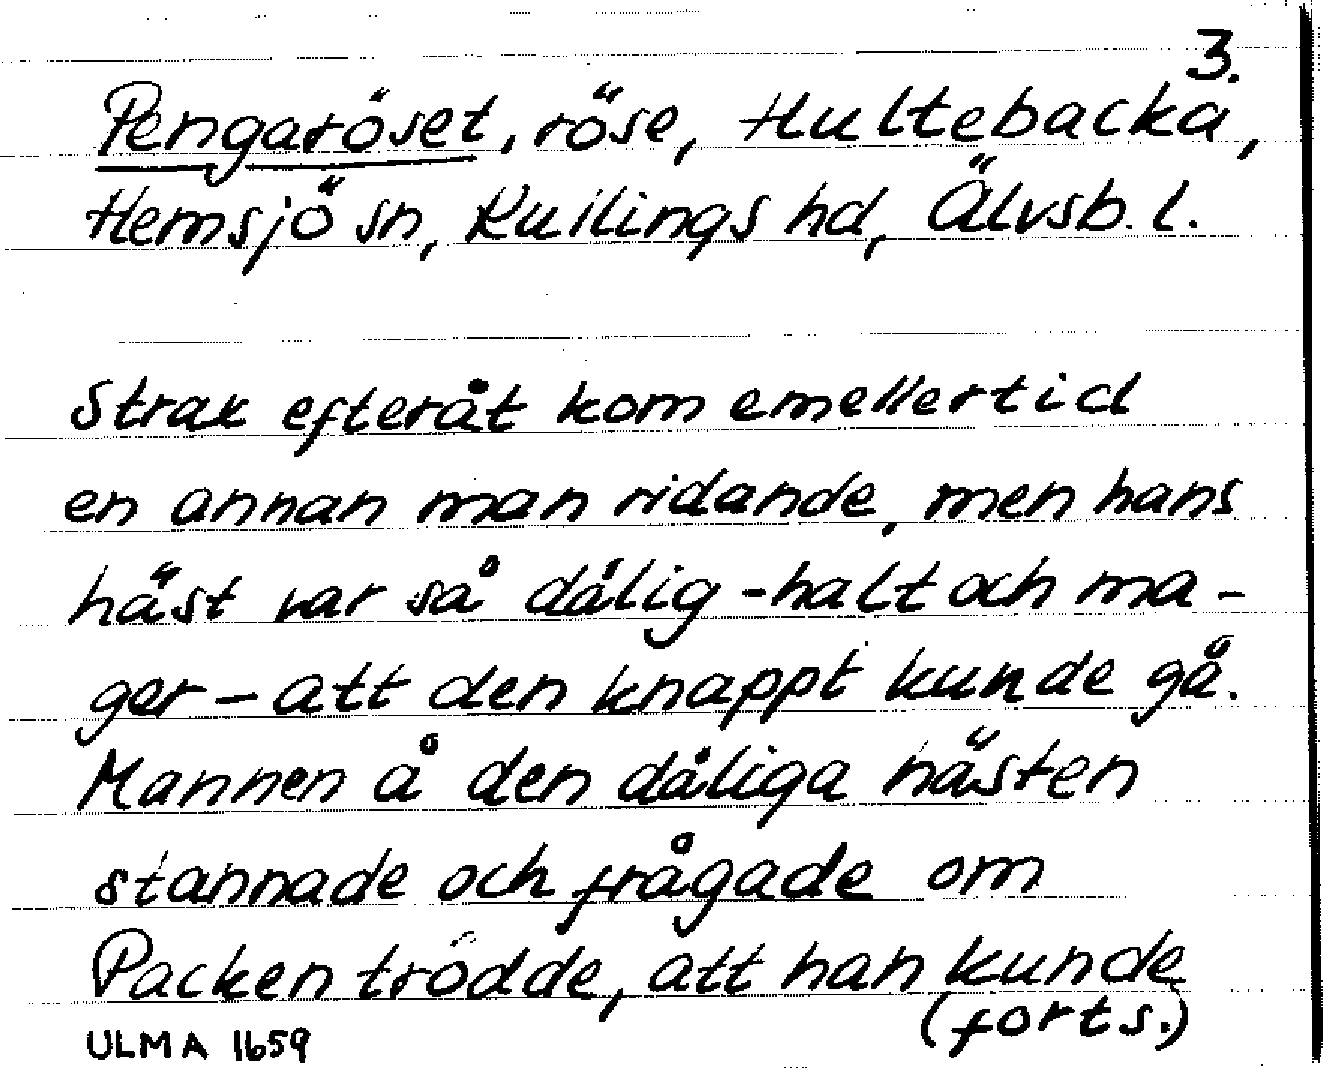 3.
Pengaröset, röse, Hultebacka,
Hemsjö sn, Kullings hd, Älvsb. l.
Strax efteråt kom emellertid
en annan man ridande, men hans
häst var så dålig - halt och ma-
ger - att den knappt kunde gå.
Mannen å den dåliga hästen
stannade och frågade om
Packen trödde, att han kunde
(forts.)
ULMA 1659